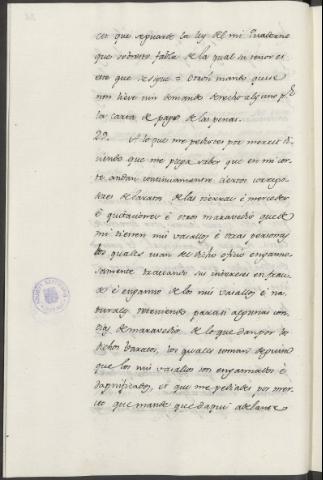 cer que se guarde la ley del mi quaderno
que sobresto fabla de la qual su tenor es
este que se sigue = Otrosi mando que se
non lieve nin demande derecho alguno pr
la carta de pago de las penas.
29. A lo que me pedistes por merced di-
ciendo que me plega saber que en mi cor-
te andan continuamente ciertos corredo-
res de baratos de las tierras é mercedes
é quitaciones é otros maravedis que de
mi tienen mis vasallos é otras personas
los quales usan del dicho oficio engañor-
samente tratando sus intereses en frau-
de é engaño de los mis vasallos é na-
turales reteniendo para si algunas con-
tias de maravedis de lo que dan por los
dichos baratos, los quales toman de guisa
que los mis vasallos son engañados é
dapnificados, et que me pediades por mer-
ced que mande que daqui adelante